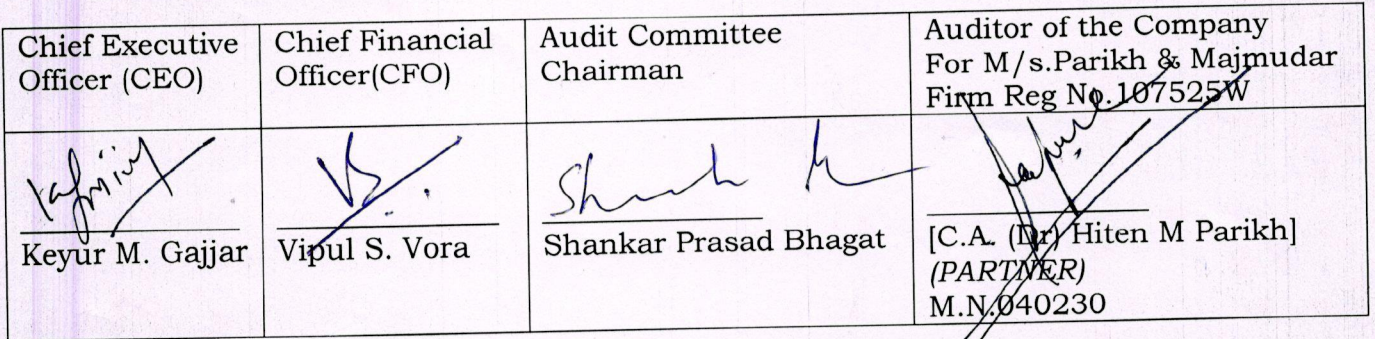 Chief Executive
Officer (CEO)
Chief Financial
Officer(CFO)
Audit Committee
Chairman
Auditor of the Company
For M/s.Parikh & Majmudar
Firm Reg No.107525W
Keyur M. Gajjar
Vipul S. Vora
Shankar Prasad Bhagat
[C.A. (Dr) Hiten M Parikh]
(PARTNER)
M.N.040230